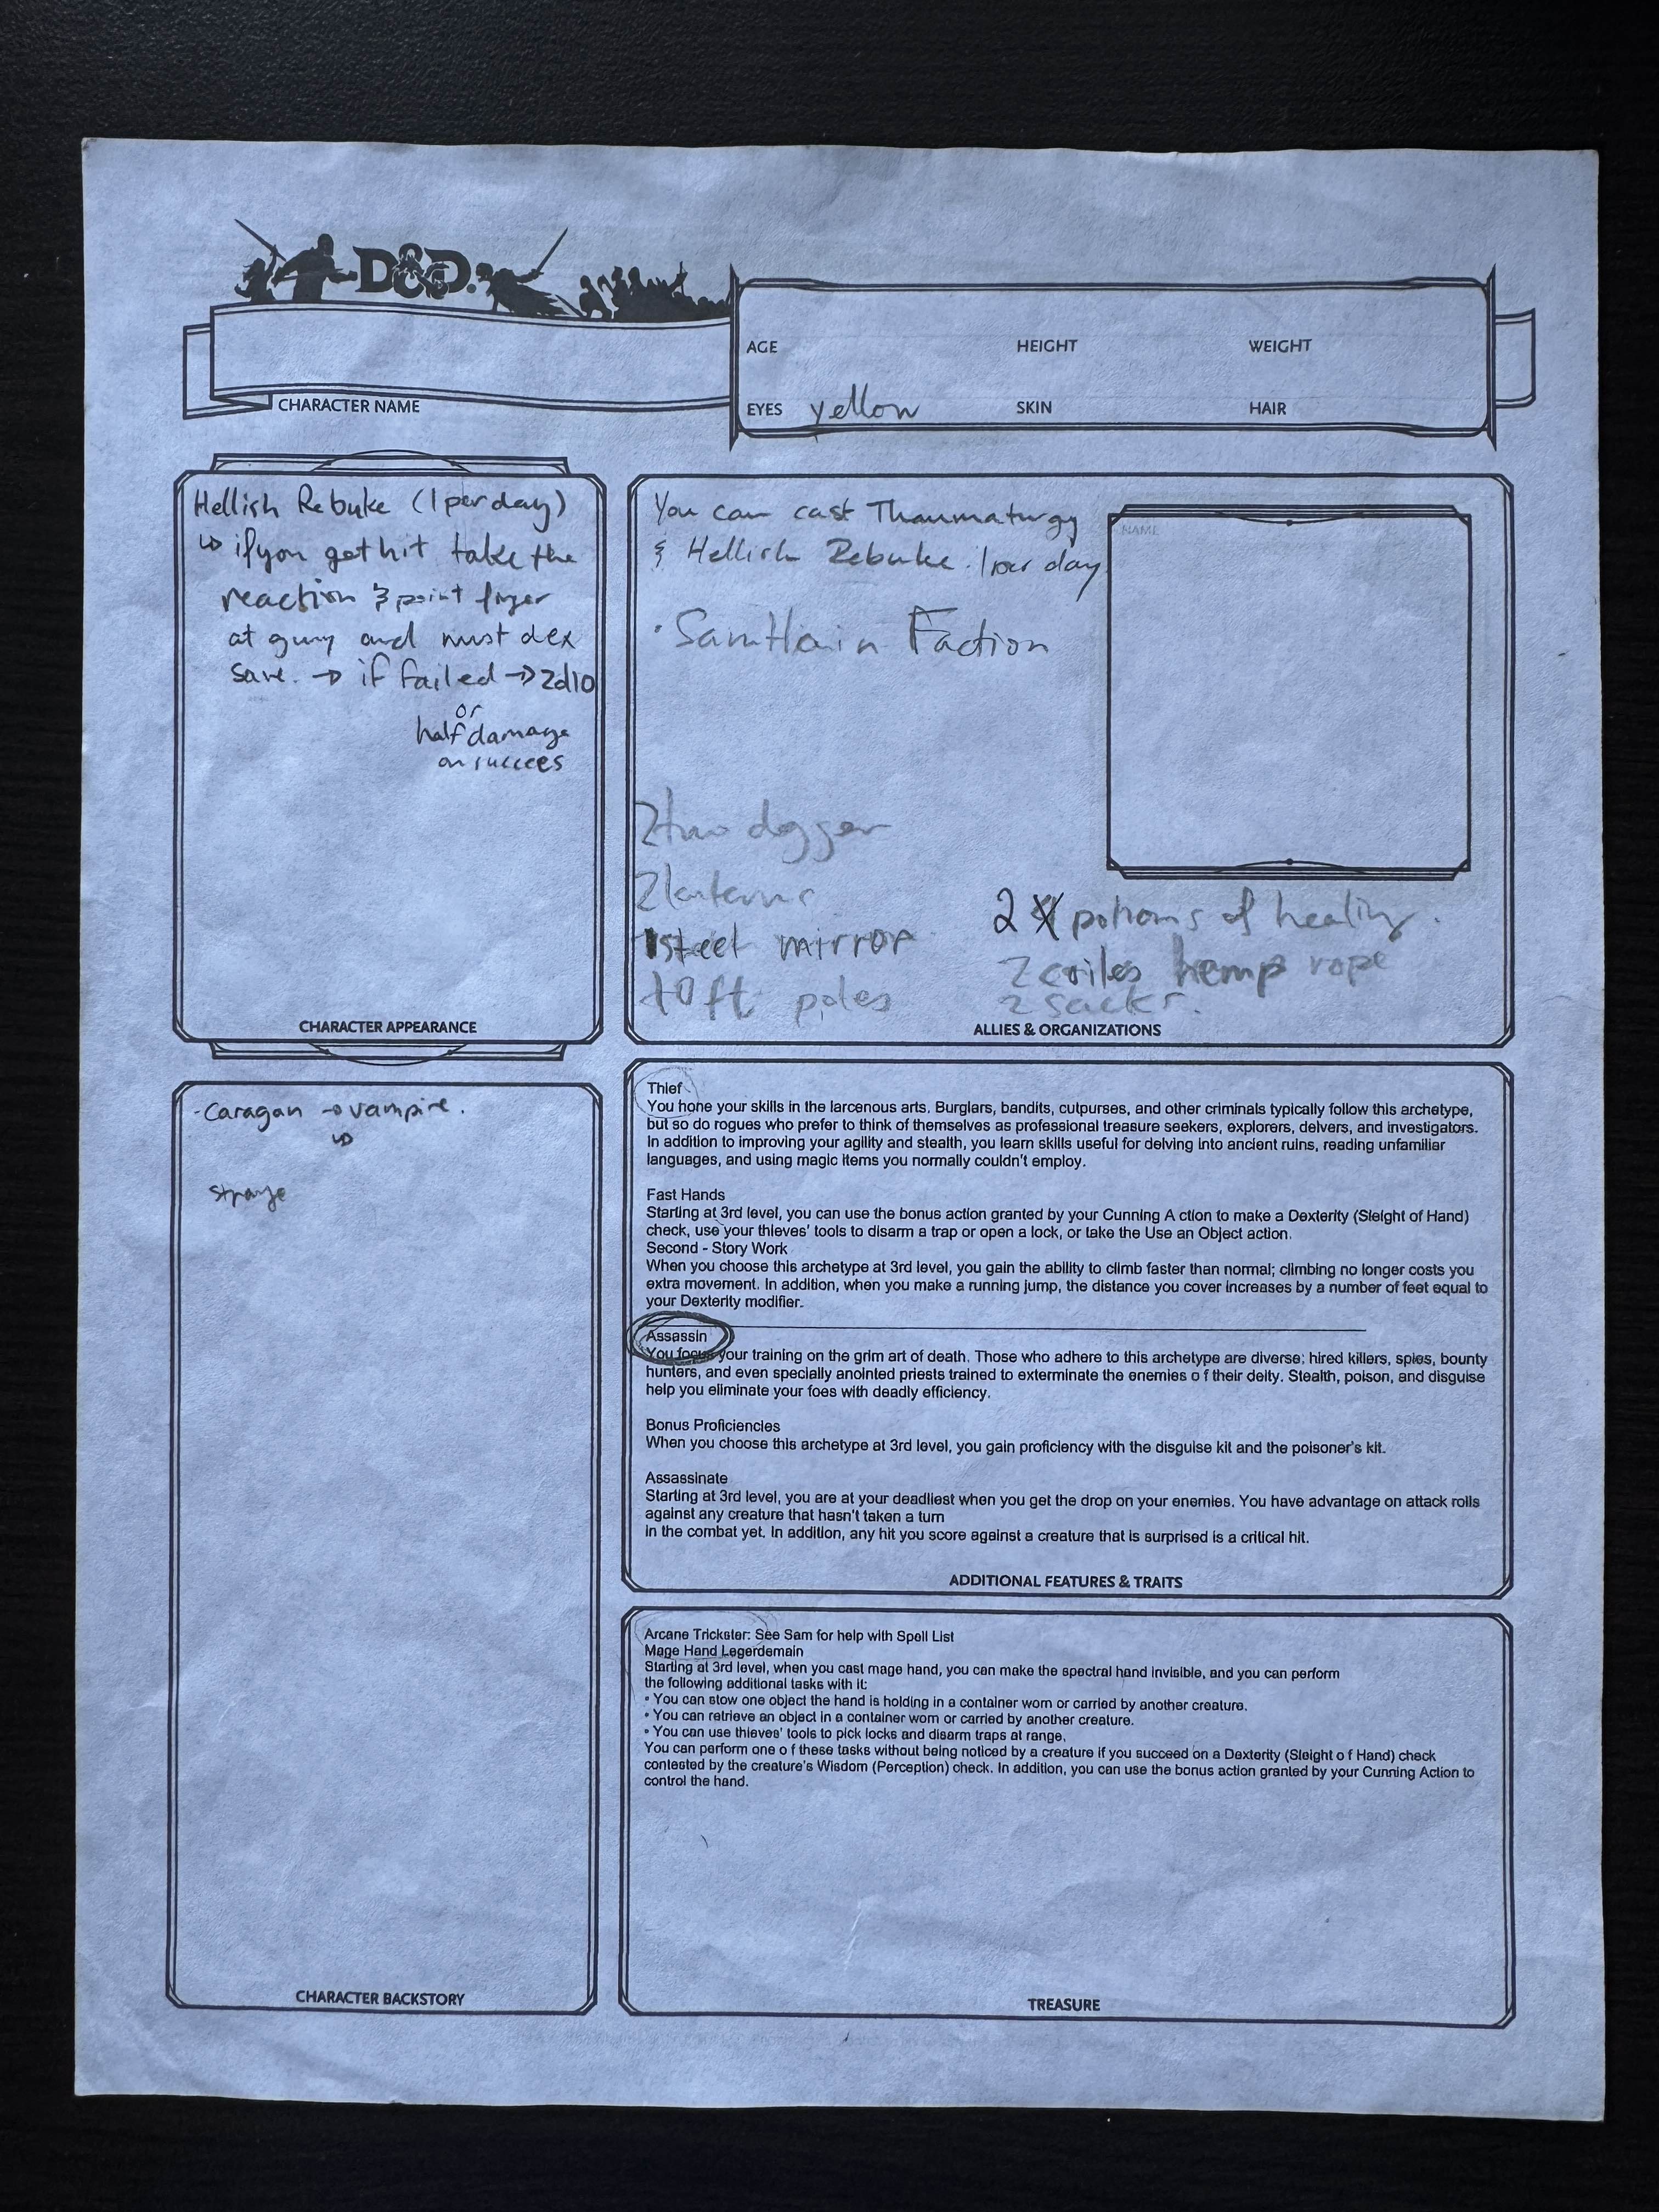 D&D.
CHARACTER NAME
AGE
HEIGHT
WEIGHT
EYES yellow
SKIN
HAIR
Hellish Rebuke (1 per day)
↳ if you get hit take the
reaction & point finger
at guy and must dex
save. → if failed → 2d10
or
half damage
on succees
CHARACTER APPEARANCE
You can cast Thaumaturgy
& Hellish Rebuke 1 per day
• Samhain Faction
NAME
2 two dagger
2 lanterns
1 steel mirror
10 ft poles
2 potions of healing.
2 coiles hemp rope
2 sacks.
ALLIES & ORGANIZATIONS
- Caragan → vampire.
↳
strange
CHARACTER BACKSTORY
Thief
You hone your skills in the larcenous arts. Burglars, bandits, cutpurses, and other criminals typically follow this archetype,
but so do rogues who prefer to think of themselves as professional treasure seekers, explorers, delvers, and investigators.
In addition to improving your agility and stealth, you learn skills useful for delving into ancient ruins, reading unfamiliar
languages, and using magic items you normally couldn't employ.
Fast Hands
Starting at 3rd level, you can use the bonus action granted by your Cunning A ction to make a Dexterity (Sleight of Hand)
check, use your thieves' tools to disarm a trap or open a lock, or take the Use an Object action.
Second - Story Work
When you choose this archetype at 3rd level, you gain the ability to climb faster than normal; climbing no longer costs you
extra movement. In addition, when you make a running jump, the distance you cover increases by a number of feet equal to
your Dexterity modifier.
Assassin
You focus your training on the grim art of death. Those who adhere to this archetype are diverse: hired killers, spies, bounty
hunters, and even specially anointed priests trained to exterminate the enemies o f their deity. Stealth, poison, and disguise
help you eliminate your foes with deadly efficiency.
Bonus Proficiencies
When you choose this archetype at 3rd level, you gain proficiency with the disguise kit and the poisoner's kit.
Assassinate
Starting at 3rd level, you are at your deadliest when you get the drop on your enemies. You have advantage on attack rolls
against any creature that hasn't taken a turn
in the combat yet. In addition, any hit you score against a creature that is surprised is a critical hit.
ADDITIONAL FEATURES & TRAITS
Arcane Trickster: See Sam for help with Spell List
Mage Hand Legerdemain
Starting at 3rd level, when you cast mage hand, you can make the spectral hand invisible, and you can perform
the following additional tasks with it:
• You can stow one object the hand is holding in a container worn or carried by another creature.
• You can retrieve an object in a container worn or carried by another creature.
• You can use thieves' tools to pick locks and disarm traps at range.
You can perform one o f these tasks without being noticed by a creature if you succeed on a Dexterity (Sleight o f Hand) check
contested by the creature's Wisdom (Perception) check. In addition, you can use the bonus action granted by your Cunning Action to
control the hand.
TREASURE